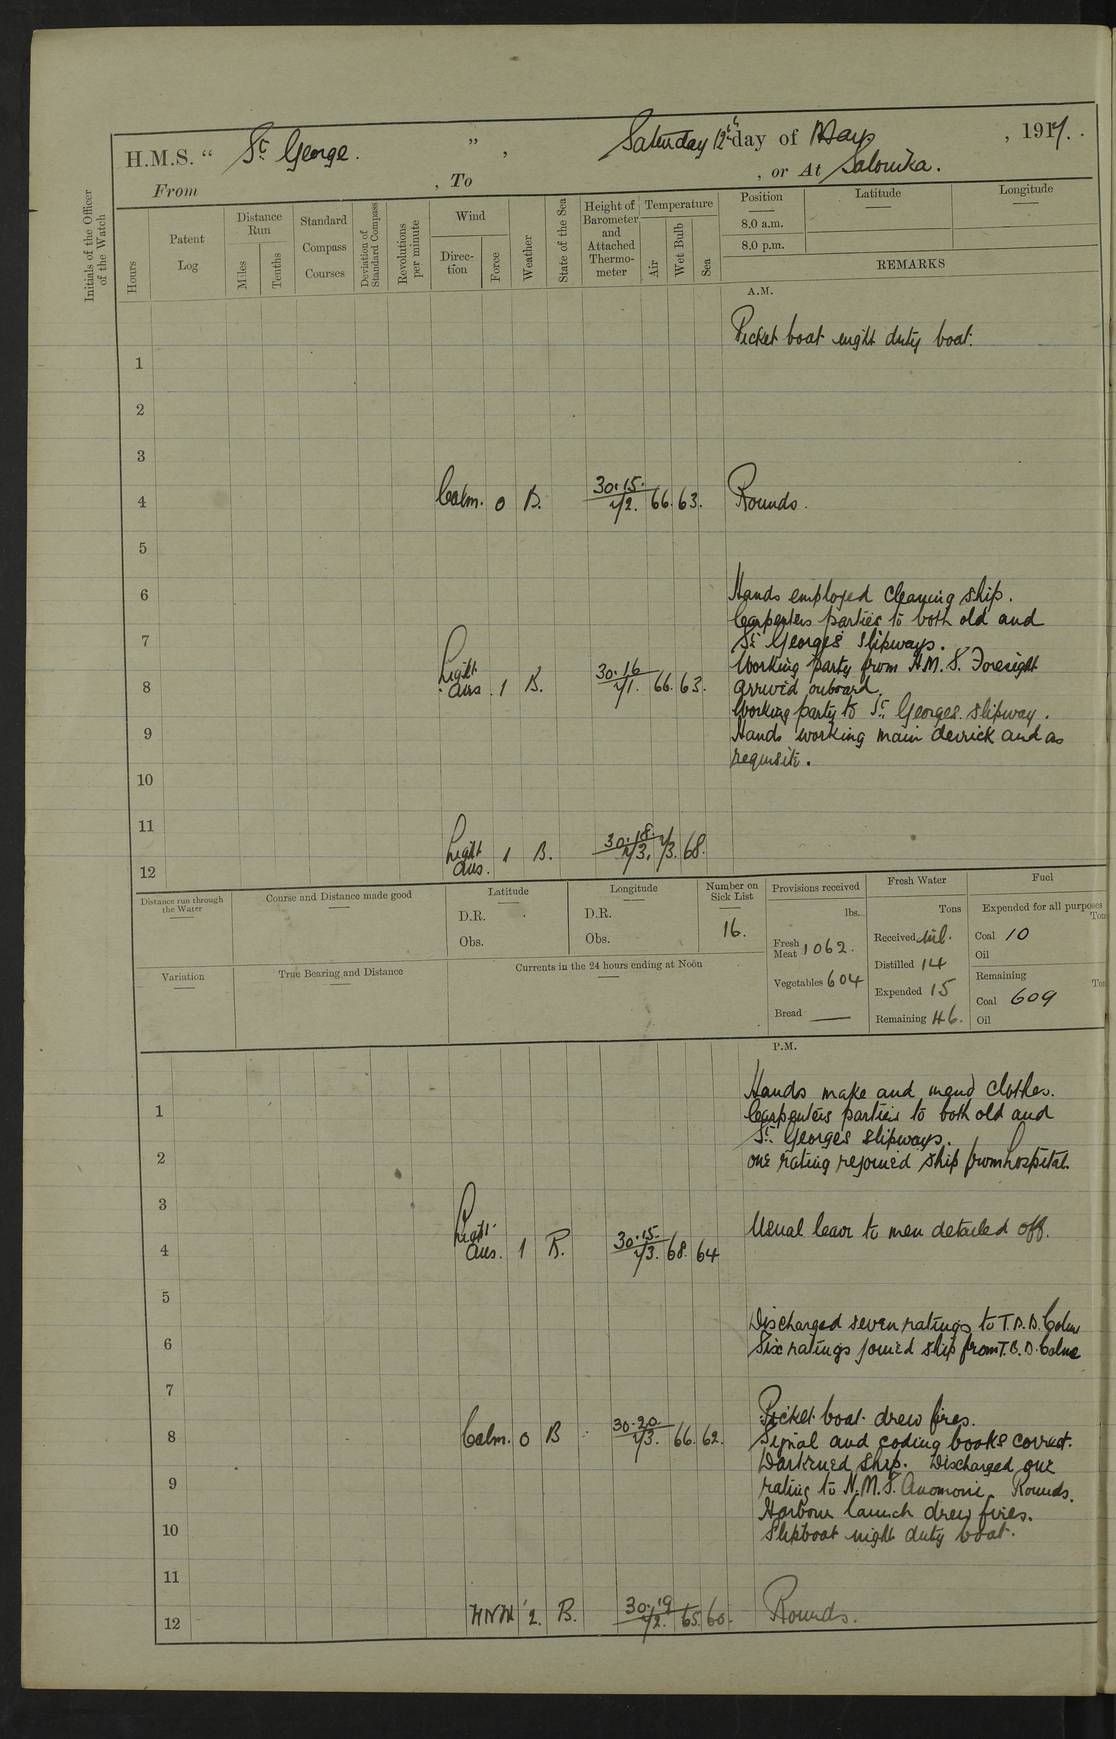 H.M.S. “ St. George. ” , Saturday 12th day of May , 1917.
From , To , or At Salonika.
Initials of the Officer of the Watch
Hours
Patent Log
Distance Run
Miles
Tenths
Standard Compass Courses
Deviation of Standard Compass
Revolutions per minute
Wind
Direction
Force
Weather
State of the Sea
Height of Barometer and Attached Thermometer
Temperature
Air
Wet Bulb
Sea
Position
8.0 a.m.
8.0 p.m.
Latitude
Longitude
REMARKS
A.M.
Picket boat night duty boat.
1
2
3
4 Calm. 0 B. 30.15. 72. 66. 63. Rounds.
5
6 Hands employed cleaning ship.
Carpenters parties to both old and
7 St. George's slipways.
Working party from H.M.S.
8 Light airs 1 B. 30.16 71. 66. 63. arrived onboard.
Working party to St. Georges slipway.
9 Hands working main derrick and as
requisite.
10
11
12 Light airs. 1 B. 30.18. 73. 73. 68.
Distance run through the Water
Course and Distance made good
Latitude
D.R.
Obs.
Longitude
D.R.
Obs.
Number on Sick List
16.
Provisions received
lbs.
Fresh Meat 1062.
Vegetables 604
Bread —
Fresh Water
Tons
Received nil.
Distilled 14
Expended 15
Remaining 46.
Fuel
Expended for all purposes
Tons
Coal 10
Oil
Remaining
Coal 609
Oil
Variation
True Bearing and Distance
Currents in the 24 hours ending at Noon
P.M.
Hands make and mend clothes.
1 Carpenters parties to both old and
St. George's slipways.
2 one rating rejoined ship from hospital.
3
Usual leave to men detailed off.
4 Light airs. 1 B. 30.15. 73. 68. 64
5
Discharged seven ratings to T.B.D. Colne
6 Six ratings joined ship from T.B.D. Colne
7
Picket boat drew fires.
8 Calm. 0 B 30.20. 73. 66. 62. Signal and coding books correct.
Darkened ship. Discharged one
9 rating to H.M.S. Rounds.
Harbour launch drew fires.
10 Slipboat night duty boat.
11
12 NNW 2. B. 30.19 72. 65. 60. Rounds.